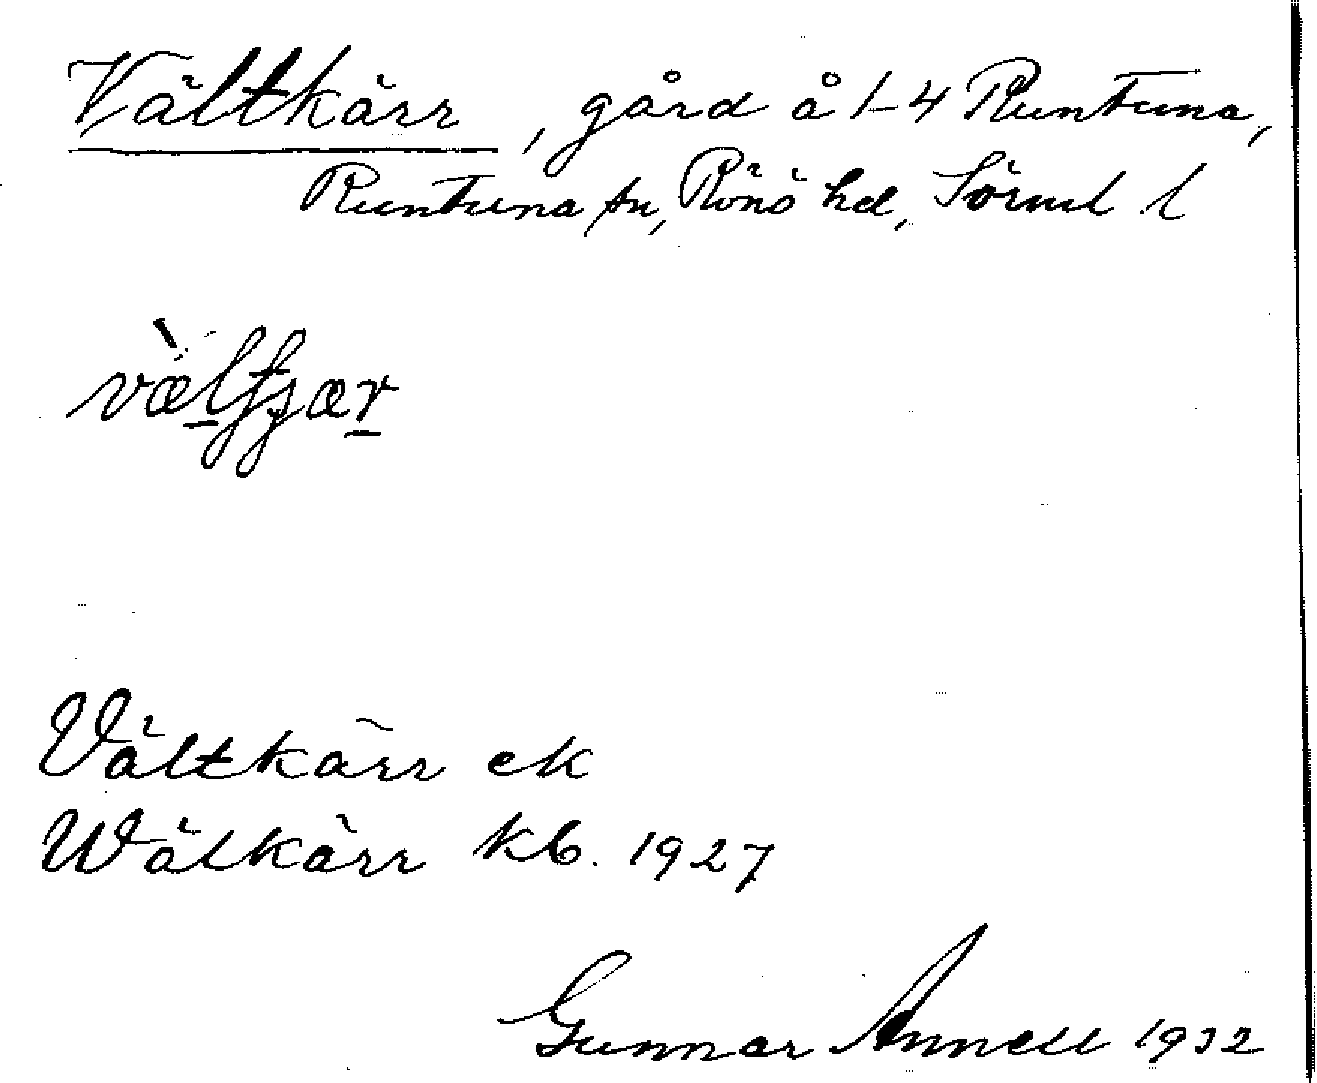 Vältkärr, gård å 1-4 Runtuna,
Runtuna sn, Rönö hd, Sörml l
Vältkärr ek
Wälkärr kb. 1927
Gunnar Annell 1932